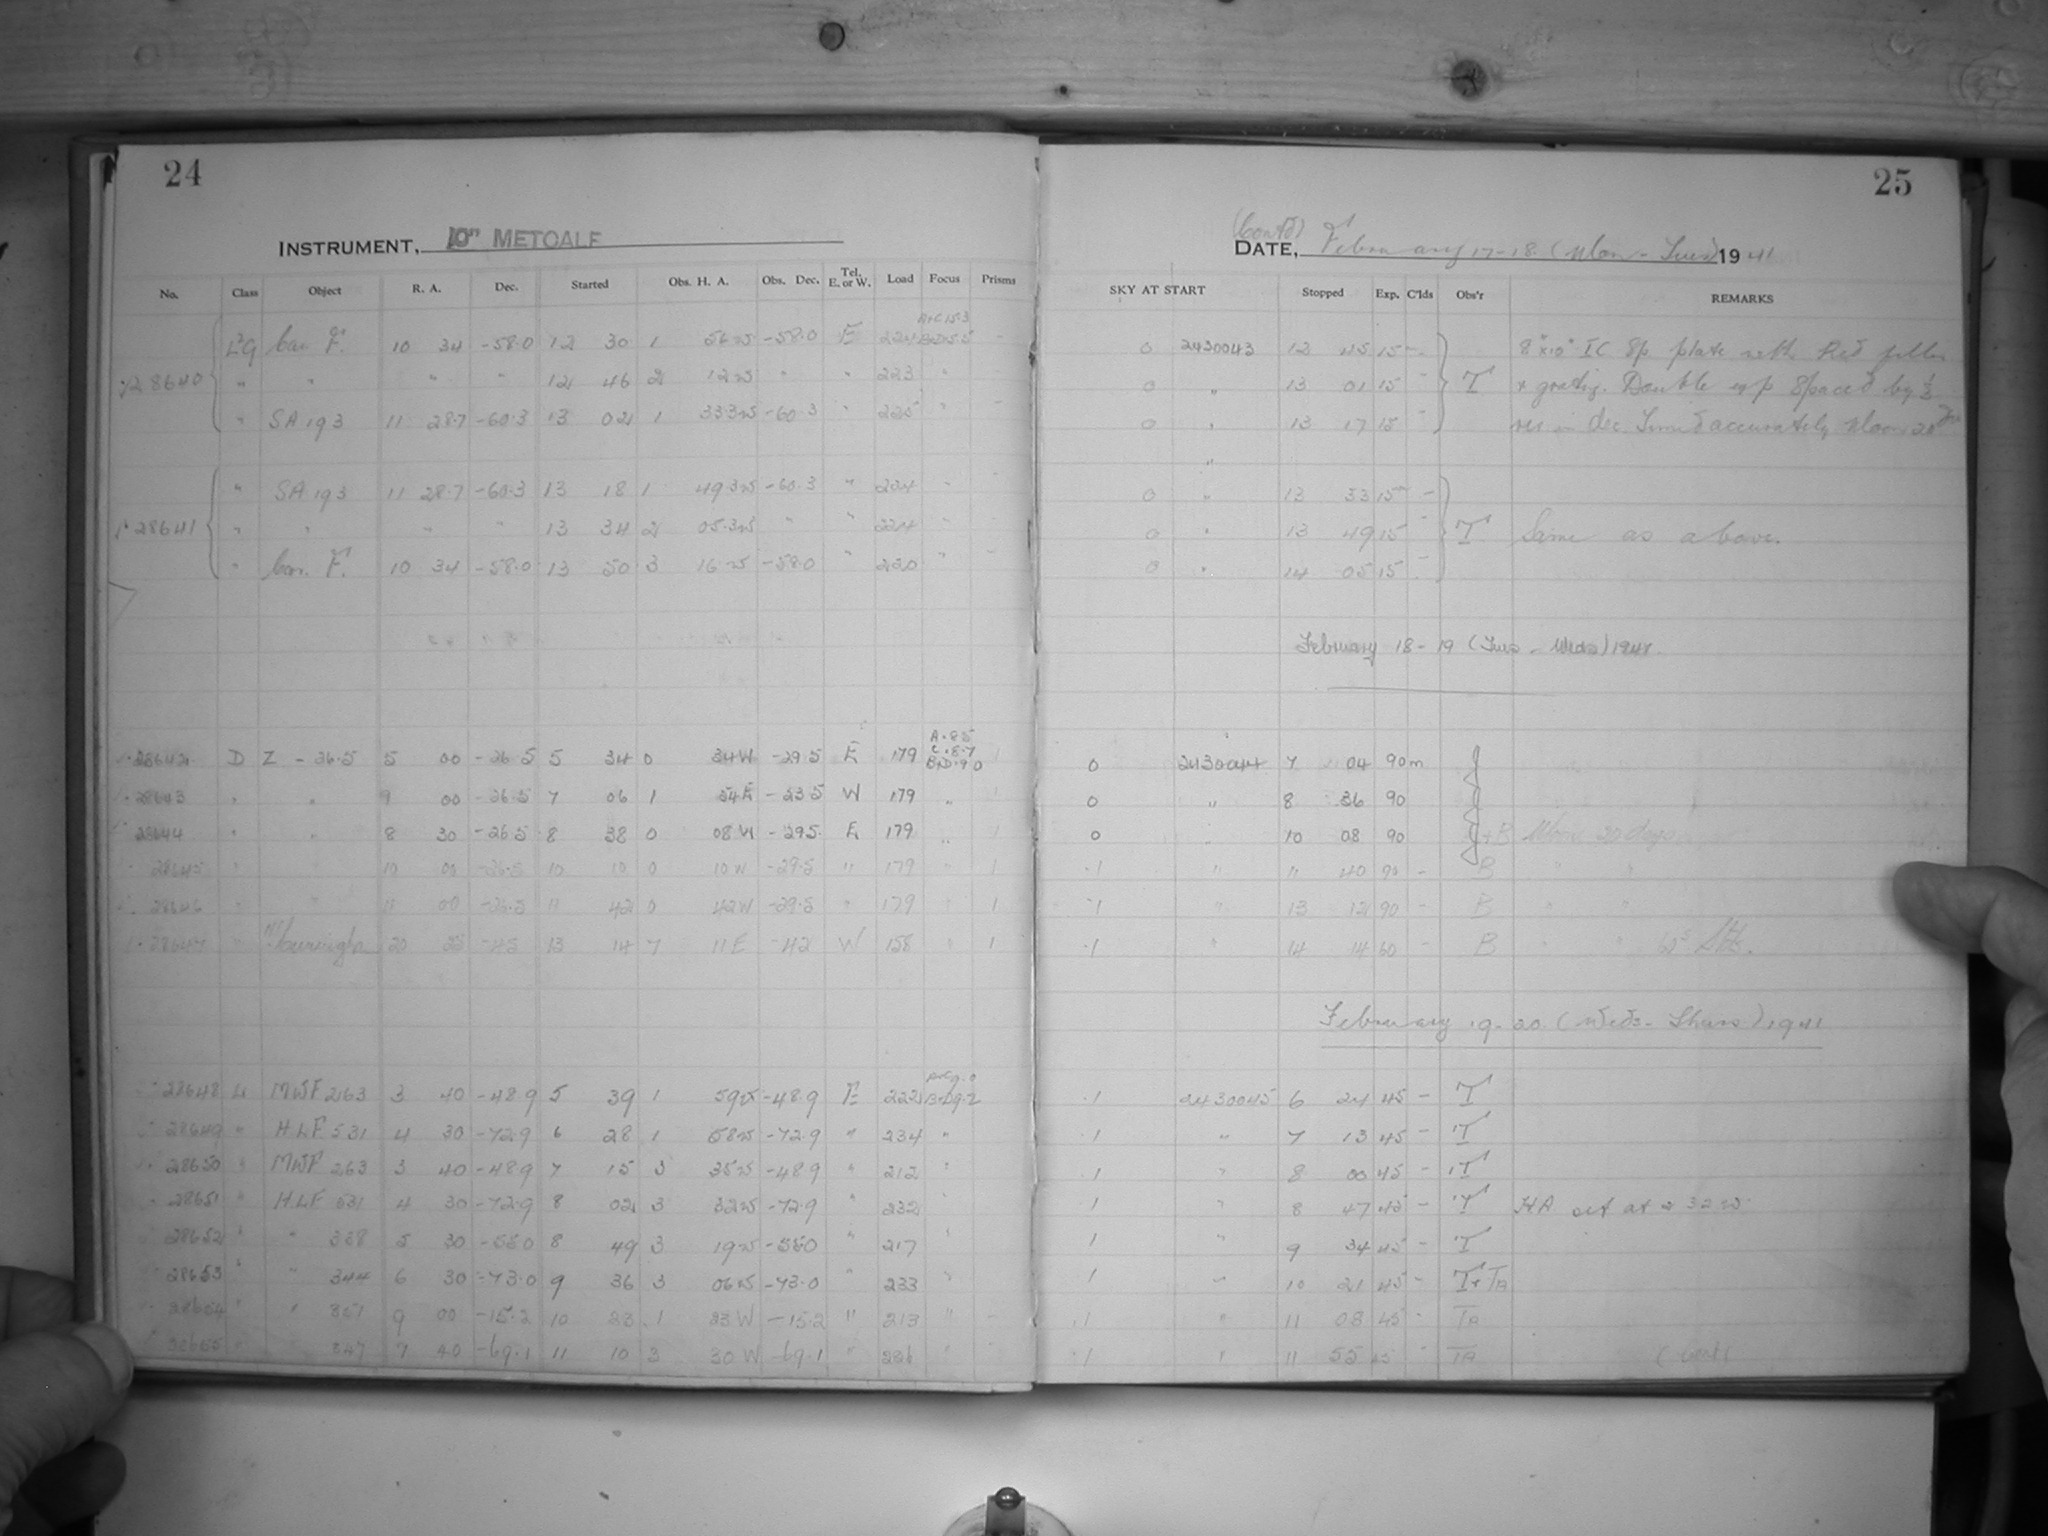 24
INSTRUMENT, 10" METCALF
No. Class Object R. A. Dec. Started Obs. H. A. Obs. Dec. Tel. E. or W. Load Focus Prisms
LG Car F. 10 34 -58.0 12 30 1 56 W -58.0 E 224
28640 " " " " 12 46 2 12 W " " 223 "
" SA 193 11 28.7 -60.3 13 02 1 33.3 W -60.3 " 225 "
" SA 193 11 28.7 -60.3 13 18 1 49.3 W -60.3 " 224 "
28641 " " " " 13 34 2 05.3 W " " 224 "
" Car. F. 10 34 -58.0 13 50 3 16 W -58.0 " 220 "
28642 D Z -26.5 5 00 -26.5 5 34 0 34 W -29.5 E 179 A.8.5 C.8.7 B+D.9.0 1
28643 " " 9 00 -26.5 7 06 1 54 E -23.5 W 179 " 1
28644 " " 8 30 -26.5 8 38 0 08 W -29.5 E 179 " 1
28645 " " 10 00 -26.5 10 10 0 10 W -29.5 " 179 " 1
28646 " " 11 00 -26.5 11 42 0 42 W -29.5 " 179 " 1
28647 " Cunningham 20 25 -45 13 14 7 11 E -42 W 158 " 1
28648 L MWF 263 3 40 -48.9 5 39 1 59 W -48.9 E 222 A+C 9.0 B+D 9.2
28649 " HLF 531 4 30 -72.9 6 28 1 58 W -72.9 " 234 "
28650 " MWF 263 3 40 -48.9 7 15 3 35 W -48.9 " 212 "
28651 " HLF 531 4 30 -72.9 8 02 3 32 W -72.9 " 232 "
28652 " " 338 5 30 -55.0 8 49 3 19 W -55.0 " 217 "
28653 " " 344 6 30 -73.0 9 36 3 06 W -73.0 " 233 "
28654 " " 351 9 00 -15.2 10 23 1 23 W -15.2 " 213 "
28655 " " 347 7 40 -69.1 11 10 3 30 W -69.1 " 226 "
25
(Cont'd)
DATE, February 17-18 (Mon - Tues) 1941
SKY AT START Stopped Exp. C'lds Obs'r REMARKS
0 2430043 12 45 15 8"x10" IC Sp plate with Red filter
0 " 13 01 15 T + gratg. Double exp spaced by
0 " 13 17 15 in dec. Timed accurately Moon
"
0 " 13 33 15 -
0 " 13 49 15 T Same as above.
0 " 14 05 15
February 18 - 19 (Tues - Weds) 1941.
0 2430044 7 04 90m
0 " 8 36 90
0 " 10 08 90 +B Moon 20 days
.1 " 11 40 90 - B " "
.1 " 13 12 90 - B " "
.1 " 14 14 60 - B " "
February 19-20 (Weds - Thurs) 1941
.1 2430045 6 24 45 - T
.1 " 7 13 45 - T
.1 " 8 00 45 - T
.1 " 8 47 45 - T HA set at 2 32 W
.1 " 9 34 45 - T
.1 " 10 21 45 - T+TA
.1 " 11 08 45 - TA
.1 " 11 55 45 " TA (Cont)